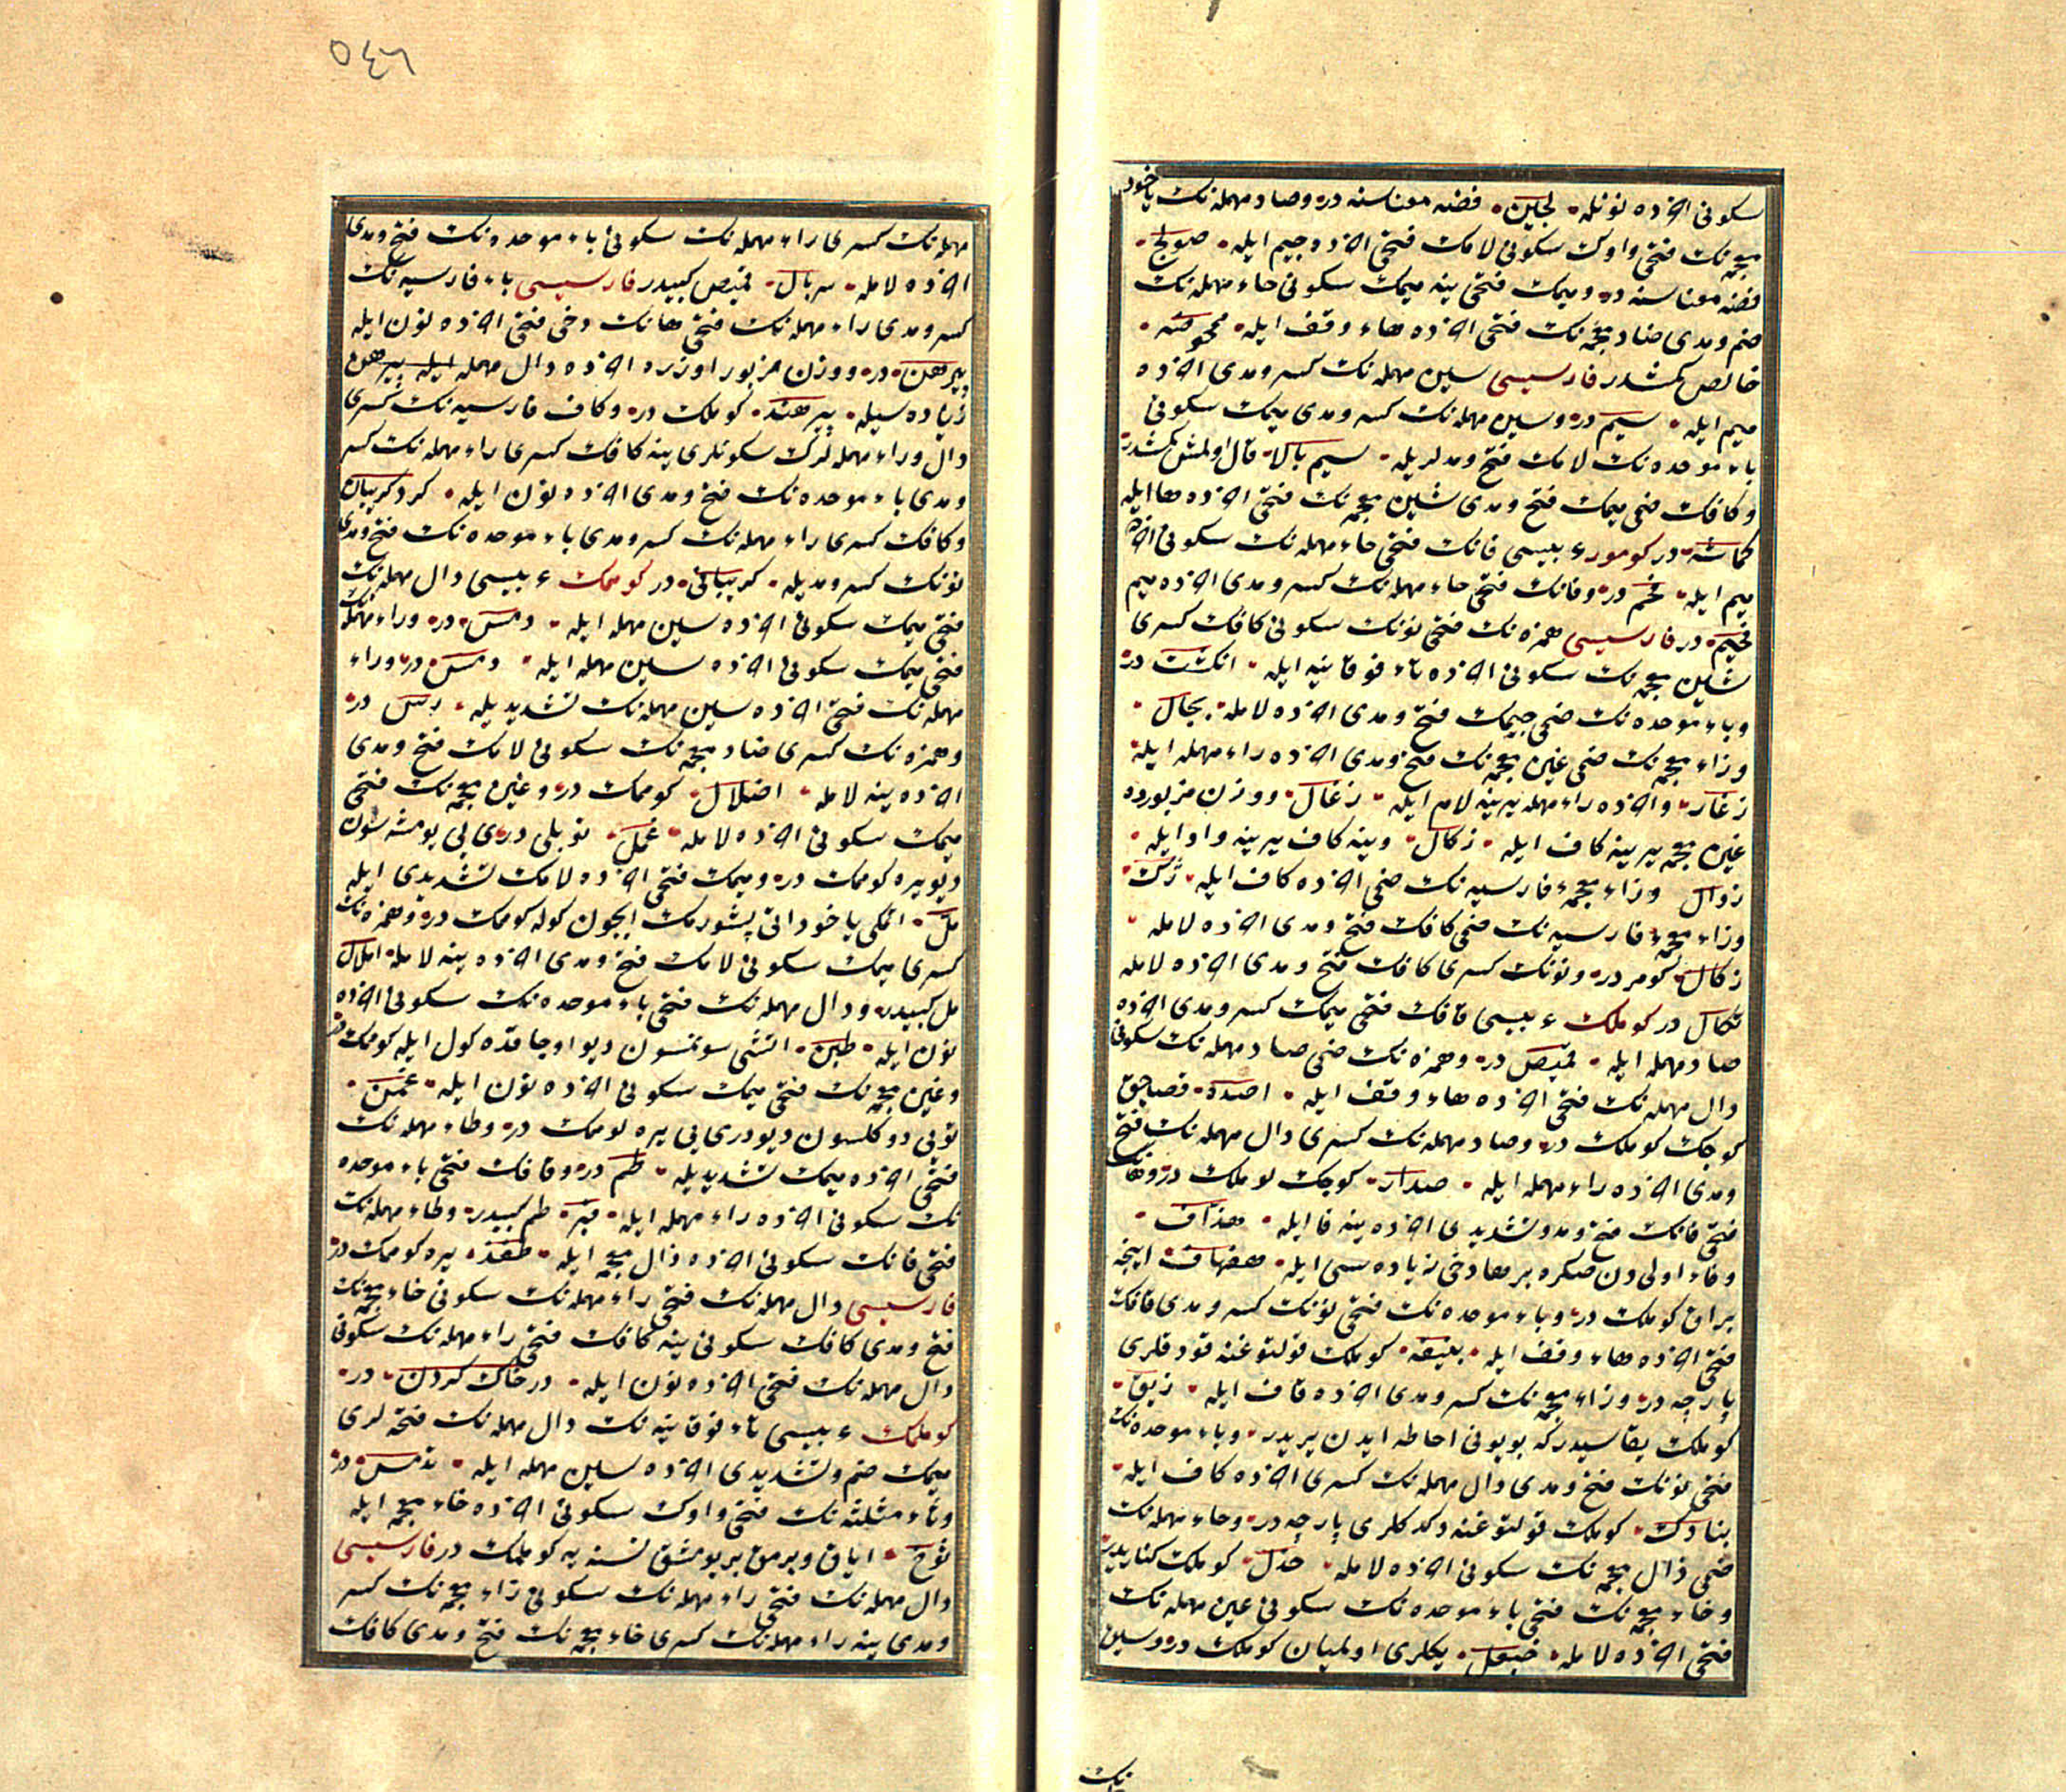 سكونى اخرده نونله لجين فضه معناسنه در وصاد مهمله نك ياخود
معجمه نك فتحى واوك سكونى لامك فتحى اخرده جيم ايله صولج
فضه معناسنه در وميمك فتحى ينه ميمك سكونى حاء مهمله نك
ضم ومدى ضاد معجمه نك فتحى اخرده هاء وقف ايله محموضه
خالص كمشدر فارسيسى سين مهمله نك كسر ومدى اخرده
ميم ايله سيم در وسين مهمله نك كسر ومدى ميمك سكونى
باء موحده نك لامك فتح ومدلريله سيم بالا قال اولمش كمشدر
وكافك ضمى ميمك فتح ومدى شين معجمه نك فتحى اخرده ها ايله
كماشه در كومور عربيسى فانك فتحى حاء مهمله نك سكونى اخرده
ميم ايله فحم در وفانك فتحى حاء مهمله نك كسر ومدى اخرده ميم
فحيم در فارسيسى همزه نك فتحى نونك سكونى كافك كسرى
شين معجمه نك سكونى اخرده تاء فوقانيه ايله انكشت در
وباء موحده نك ضمى جيمك فتح ومدى اخرده لامله بجال
وزاء معجمه نك ضمى غين معجمه نك فتح ومدى اخرده راء مهمله ايله
زغار واخرده راء مهمله يرينه لام ايله زغال ووزن مزبورده
غين معجمه يرينه كاف ايله زكال وينه كاف يرينه واو ايله
زوال وزاء معجمهء فارسيه نك ضمى اخرده كاف ايله ژك
وزاء معجمهء فارسيه نك ضمى كافك فتح ومدى اخرده لامله
ژكال كومر در ونونك كسرى كافك فتح ومدى اخرده لامله
نكال در كوملك عربيسى قافك فتحى ميمك كسر ومدى اخرده
صاد مهمله ايله قميص در وهمزه نك ضمى صاد مهمله نك سكونى
دال مهمله نك فتحى اخرده هاء وقف ايله اصده قصاجق
كوجك كوملك در وصاد مهمله نك كسرى دال مهمله نك فتح
ومدى اخرده راء مهمله ايله صدار كوجك كوملك در وهانك
فتحى فانك فتح ومد وتشديدى اخرده ينه فا ايله هفاف
وفاء اولى دن صكره بر ها دخى زياده سى ايله هفهاف اينجه
براق كوملك در وباء موحده نك فتحى نونك كسر ومدى قافك
فتحى اخرده هاء وقف ايله بنيقه كوملك قولتوغنه قودقلرى
پارچه در وزاء معجمه نك كسر ومدى اخرده قاف ايله زيق
كوملك يقاسيدر كه بويونى احاطه ايدن يريدر وباء موحده نك
فتحى نونك فتح ومدى دال مهمله نك كسرى اخرده كاف ايله
بنادك كوملك قولتوغنه دكدكلرى پارچه در وحاء مهمله نك
ضمى ذال معجمه نك سكونى اخرده لامله حذل كوملك كناريدر
وخاء معجمه نك فتحى باء موحده نك سكونى عين مهمله نك
فتحى اخرده لامله خبعل يكلرى اولميان كوملك در وسين
نك
٥٤٦
مهمله نك كسرى راء مهمله نك سكونى باء موحده نك فتح ومدى
اخرده لامله سربال قميص كبيدر فارسيسى باء فارسيه نك
كسر ومدى راء مهمله نك فتحى هانك دخى فتحى اخرده نون ايله
پيرهن در ووزن مزبور اوزره اخرده دال مهمله ايله پيرهن
زياده سيله پيرهند كوملك در وكاف فارسيه نك كسرى
دال وراء مهمله لرك سكونلرى ينه كافك كسرى راء مهمله نك كسر
ومدى باء موحده نك فتح ومدى اخرده نون ايله كردكريبان
وكافك كسرى راء مهمله نك كسر ومدى باء موحده نك فتح ومدى
نونك كسر ومديله كريبانى در كوممك عربيسى دال مهمله نك
فتحى ميمك سكونى اخرده سين مهمله ايله دمس در وراء مهمله نك
فتحى ميمك سكونى اخرده سين مهمله ايله رمس در وراء
مهمله نك فتحى اخرده سين مهمله نك تشديديله رس در
وهمزه نك كسرى ضاد معجمه نك سكونى لامك فتح ومدى
اخرده ينه لامله اضلال كوممك در وغين معجمه نك فتحى
ميمك سكونى اخرده لامله غمل تويلى درى يى يومشه سون
ديو يره كوممك در وميمك فتحى اخرده لامك تشديدى ايله
مل اتمكى ياخود اتى پشورمك ايجون كوله كوممك در وهمزه نك
كسرى ميمك سكونى لامك فتح ومدى اخرده ينه لامله املال
مل كبيدر ودال مهمله نك فتحى باء موحده نك سكونى اخرده
نون ايله طبن اتشى سونمسون ديو اوجاقده كول ايله كوممك در
وغين معجمه نك فتحى ميمك سكونى اخرده نون ايله غمن
تويى دوكلسون ديو درى يى يره كوممك در وطاء مهمله نك
فتحى اخرده ميمك تشديديله طم در وقافك فتحى باء موحده
نك سكونى اخرده راء مهمله ايله قبر طم كبيدر وطاء مهمله نك
فتحى فانك سكونى اخرده ذال معجمه ايله طفذ يره كوممك در
فارسيسى دال مهمله نك فتحى راء مهمله نك سكونى خاء معجمه نك
فتح ومدى كافك سكونى ينه كافك فتحى راء مهمله نك سكونى
دال مهمله نك فتحى اخرده نون ايله در خاك كردن در
كوملمك عربيسى تاء فوقانيه نك دال مهمله نك فتحه لرى
ميمك ضم وتشديدى اخرده سين مهمله ايله تدمس در
وثاء مثلثه نك فتحى واوك سكونى اخرده خاء معجمه ايله
ثوخ اياق وبرمق بر يومشق نسنه يه كوملمك در فارسيسى
دال مهمله نك فتحى راء مهمله نك سكونى زاء معجمه نك كسر
ومدى ينه راء مهمله نك كسرى خاء معجمه نك فتح ومدى كافك